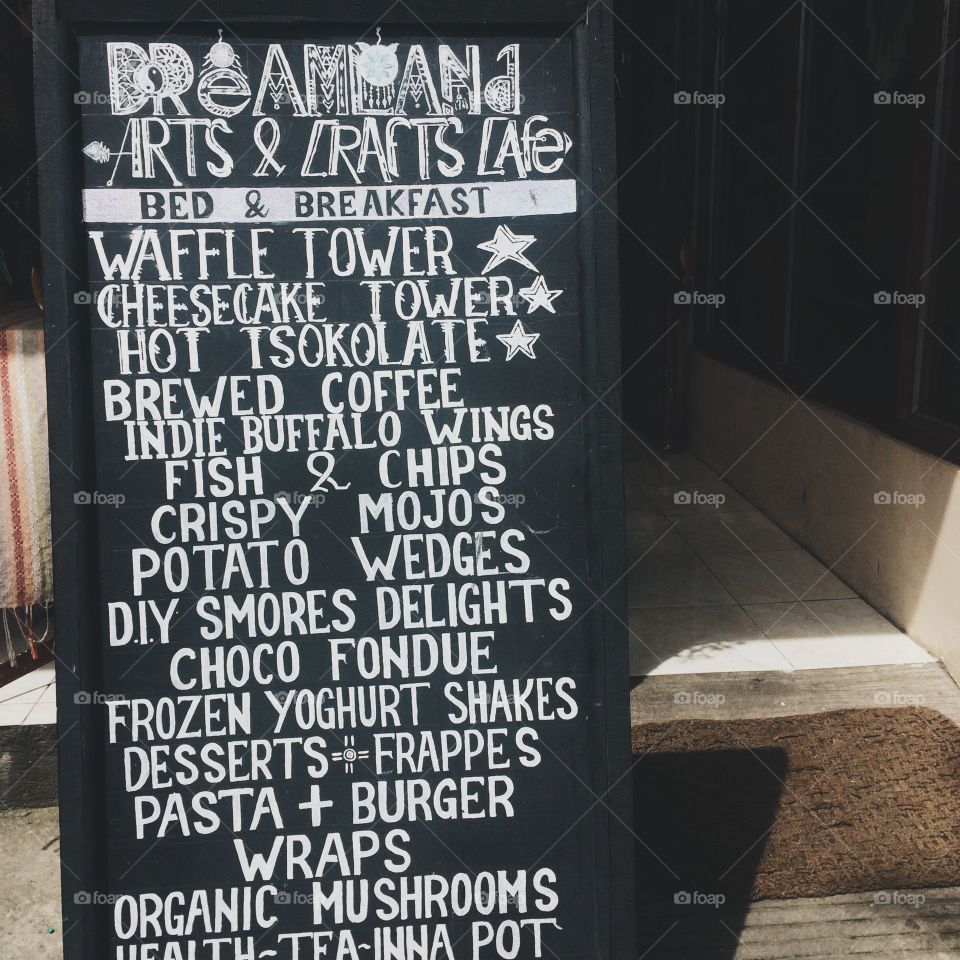 DREAMLAND
ARTS & CRAFTS CAFe
BED & BREAKFAST
WAFFLE TOWER
CHEESECAKE TOWER
HOT TSOKOLATE
BREWED COFFEE
INDIE BUFFALO WINGS
FISH & CHIPS
CRISPY MOJOS
POTATO WEDGES
D.I.Y SMORES DELIGHTS
CHOCO FONDUE
FROZEN YOGHURT SHAKES
DESSERTS FRAPPES
PASTA + BURGER
WRAPS
ORGANIC MUSHROOMS
HEALTH-TEA-INNA POT